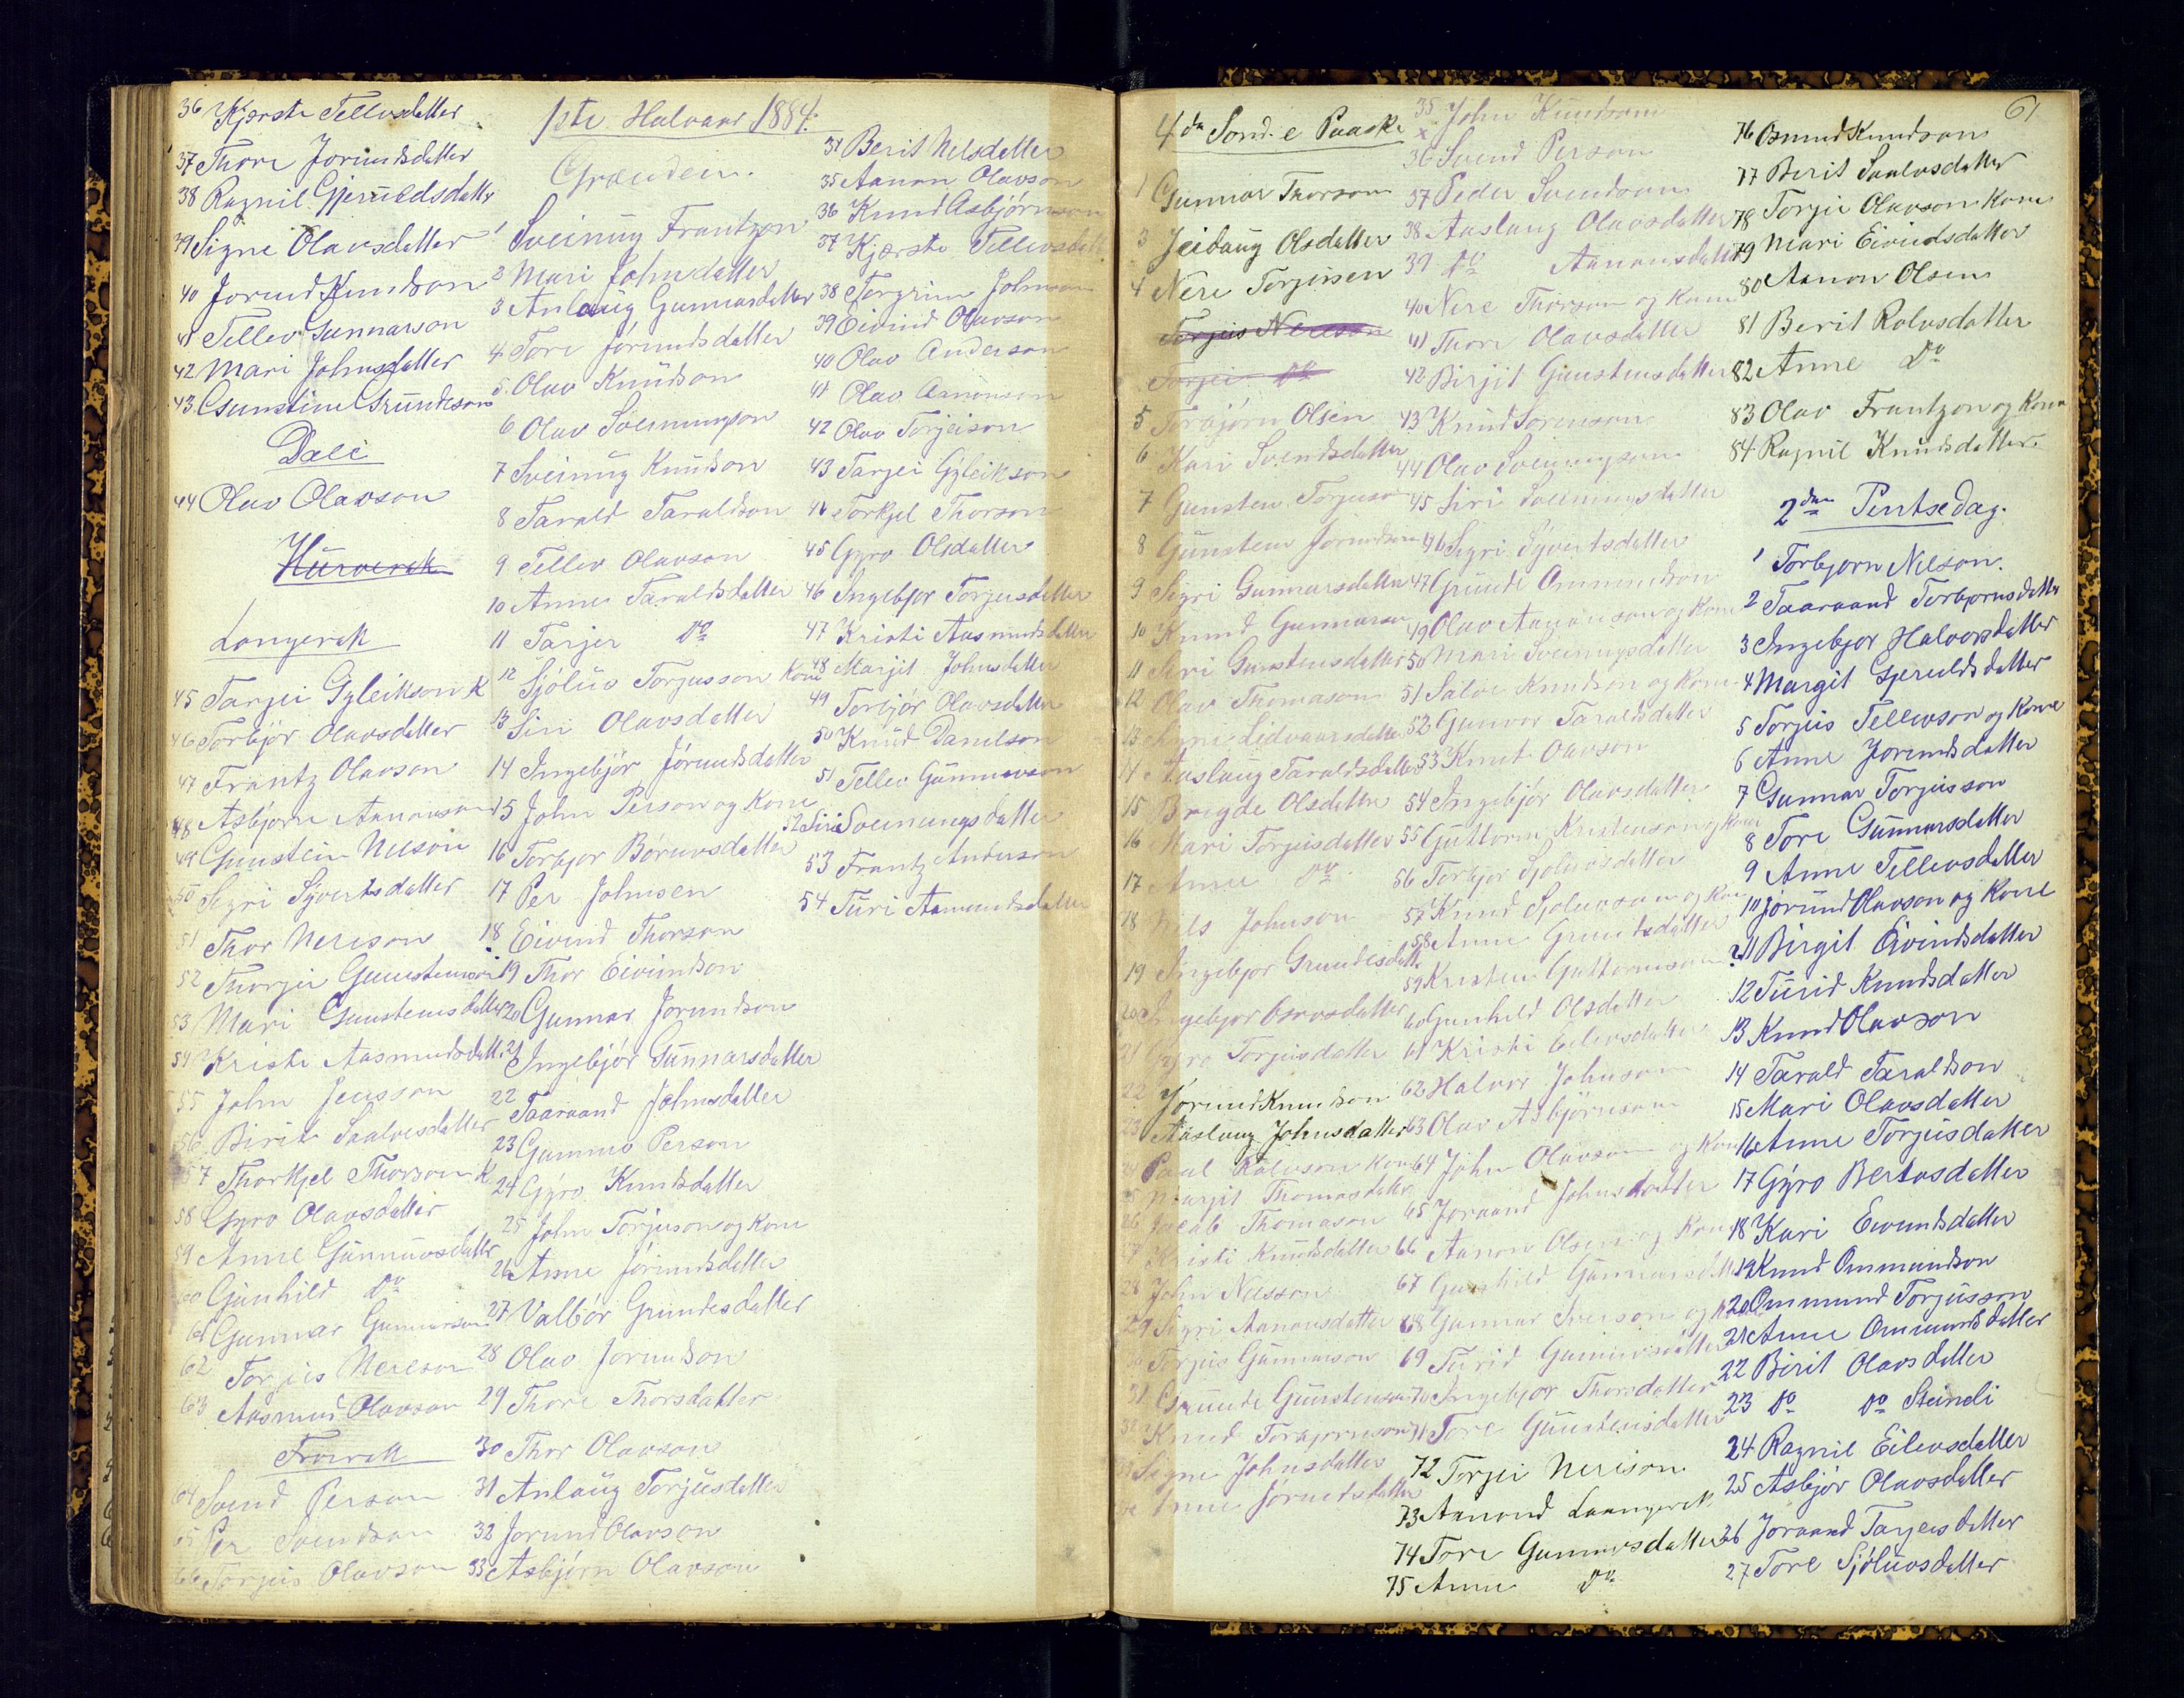 36 Kjerste Tellevsdatter
37 Thore Jorundsdatter
38 Ragnil Gjeruldsdatter
39 Signe Olavsdatter
40 Jorund Knudson
41 Tellev Gunnarson
42 Mari Johnsdatter
43 Gunstein Grundeson
Dale
44 Olav Olavson
Langerak
45 Tarjei Gyleikson K
46 Torbjør Olavsdatter
47 Frantz Olavson
48 Asbjørn Aanonson
49 Gunstein Neison
50 Sigri Syvertsdatter
51 Thor Nereson
52 Thorjei Gunsteinson
53 Mari Gunsteinsdatter
54 Kriste Aasmundsdatt.
55 John Jensson
56 Birit Saalvesdatter
57 Thorkjel Thorson K
58 Gyro Olavsdatter
59 Anne Gunnuvsdatter
60 Gunhild Do
61 Gunnar Gunnarson
62 Torjus Nereson
63 Aasmund Olavson
Frøirak
64 Svend Person
65 Per Svendson
66 Torjus Olavson
1ste Halvaar 1884.
1 Sveinung Frantzon
2 Mari Johnsdatter
3 Anlaug Gunnarsdatter
4 Tore Jørundsdatter
5 Olav Knudson
6 Olav Sveinungson
7 Sveinung Knudson
8 Tarald Taraldson
9 Tellev Olavson
10 Anne Taraldsdatter
11 Tarjer Do
12 Sjøluv Torgusson Kone
13 Siri Olavsdatter
14 Ingebjør Jørundsdatter
15 John Person og Kone
16 Torbjør Børuvsdatter
17 Per Johnsen
18 Eivind Thorson
19 Thor Eivindson
20 Gunnar Jorundson
21 Ingebjør Gunnarsdatter
22 Taaraand Johnsdatter
23 Gunnuv Person
24 Gyro Knudsdatter
25 John Torjuson og Kone
26 Anne Jørundsdatter
27 Valbør Grundesdatter
28 Olav Jorundson
29 Thore Thorsdatter
30 Thor Olavson
31 Anlaug Torjusdatter
32 Jorund Olavson
33 Asbjørn Olavson
Berit Nelsdatter
35 Aanon Olavson
36 Knud Asbjørnson
37 Kjerste Tellevsdatt
38 Torgrim Johnson
39 Eivind Olavson
40 Olav Anderson
41 Olav Aanonson
42 Olav Torjeison
43 Tarjei Gyleikson
44 Torkjel Thorson
45 Gyro Olsdatter
46 Ingebjør Torjusdatter
47 Kristi Aasmundsdatter
48 Marjit Johnsdatter
49 Torbjør Olavsdatter
50 Knud Danielson
51 Tellev Gunnuvson
52 Siri Sveinungsdatter
53 Frantz Anderson
54 Turi Aamundsdatter
61
4de Sønd. e Paaske
1 Gunnar Thorson
3 Jeibaug Olsdatter
4 Nere Torjussen
Torjus Nereson
Torjei Do
5 Torbjørn Olsen
6 Kari Svendsdatter
7 Gunsten Torjuson
8 Gunsten Jorundson
9 Sigri Gunnarsdatter
10 Knud Gunnarson
11 Siri Gunstensdatter
12 Olav Thomason
13 Lidvaarsdatter
14 Aaslaug Taraldsdatter
15 Brugde Olsdatter
16 Mari Torjusdatter
17 Anne Do
18 Nils Johnson
19 Ingebjor Grundesdatt
20 Ingebjor Osuvsdatter
21 Gyro Torjusdatter
22 Jørund Knudson
23 Aaslaug Johnsdatter
24 Paul Rolvson Kone
25 Marjit Thomasdatter
26 Jacob Thomason
27 Kristi Knudsdatter
28 John Nilsson
29 Sigri Aanonsdatter
30 Torjus Gunnarson
31 Grunde Gunstenson
32 Knud Torbjornson
33 Signe Johnsdatter
34 Anne Jørundsdatter
35 John Knudson
x
36 Svend Person
37 Peder Svendson
38 Aaslaug Olavsdatter
39 Do Aanonsdatter
40 Nere Thorson og Kone
41 Thore Olavsdatter
42 Birjit Gunstensdatter
43 Knud Sorenson
44 Olav Sveinungson
45 Siri Sveinungsdatter
46 Sigri Syvertsdatter
47 Grunde Ommundson
49 Olav Aanonson og Kone
50 Mari Sveinungsdatter
51 Salve Knudson og Kone
52 Gunvor Taraldsdatter
53 Knut Oavson
54 Ingebjør Olavsdatter
55 Guttorm Kristenson og Kone
56 Torbjor Sjoluvsdatter
57 Knud Sjoluvson og Kone
58 Anne Grundesdatter
59 Kristen Guttormson
60 Gunhild Olsdatter
61 Kristi Eilevsdatter
62 Halvor Johnson
63 Olav Asbjørnson
64 John Olavson og Kone
65 Joraand Johnsdatter
66 Aanon Olsen og Kone
67 Gunhild Gunnarsdatter
68 Gunnar Iverson og Kone
69 Turid Gunnuvsdatter
70 Ingebjor Thorsdatter
71 Tore Gunsteinsdatter
72 Torjei Nerison
73 Aanond Laangerak
74 Tore Gunnuvsdatter
75 Anne Do
76 Osmund Knudson
77 Berit Saalvsdatter
78 Torjei Olavson Kone
79 Mari Eivindsdatter
80 Aanon Olsen
81 Berit Rolvsdatter
82 Anne Do
83 Olav Frantzon og Kone
84 Ragnil Knudsdatter
2den Pintsedag.
1 Torbjorn Nilson.
2 Taaraand Torbjornsdatter
3 Ingebjor Halvorsdatter
4 Margit Gjeruldsdatter
5 Torjus Tellevson og Kone
6 Anne Jorundsdatter
7 Gunnar Torjusson
8 Tore Gunnarsdatter
9 Anne Tellevsdatter
10 Jørund Olavson og Kone
11 Birgit Eivindsdatter
12 Turid Knudsdatter
13 Knud Olavson
14 Tarald Taraldson
15 Mari Olavsdatter
16 Anne Torjusdatter
17 Gyro Bertosdatter
18 Kari Eivindsdatter
19 Knud Ommundson
20 Ommund Torjusson
21 Anne Ommundsdatter
22 Birit Olavsdatter
23 Do Do Steindi
24 Ragnil Eilevsdatter
25 Asbjør Olavsdatter
26 Joraand Tarjeisdatter
27 Tore Sjøluvsdatter